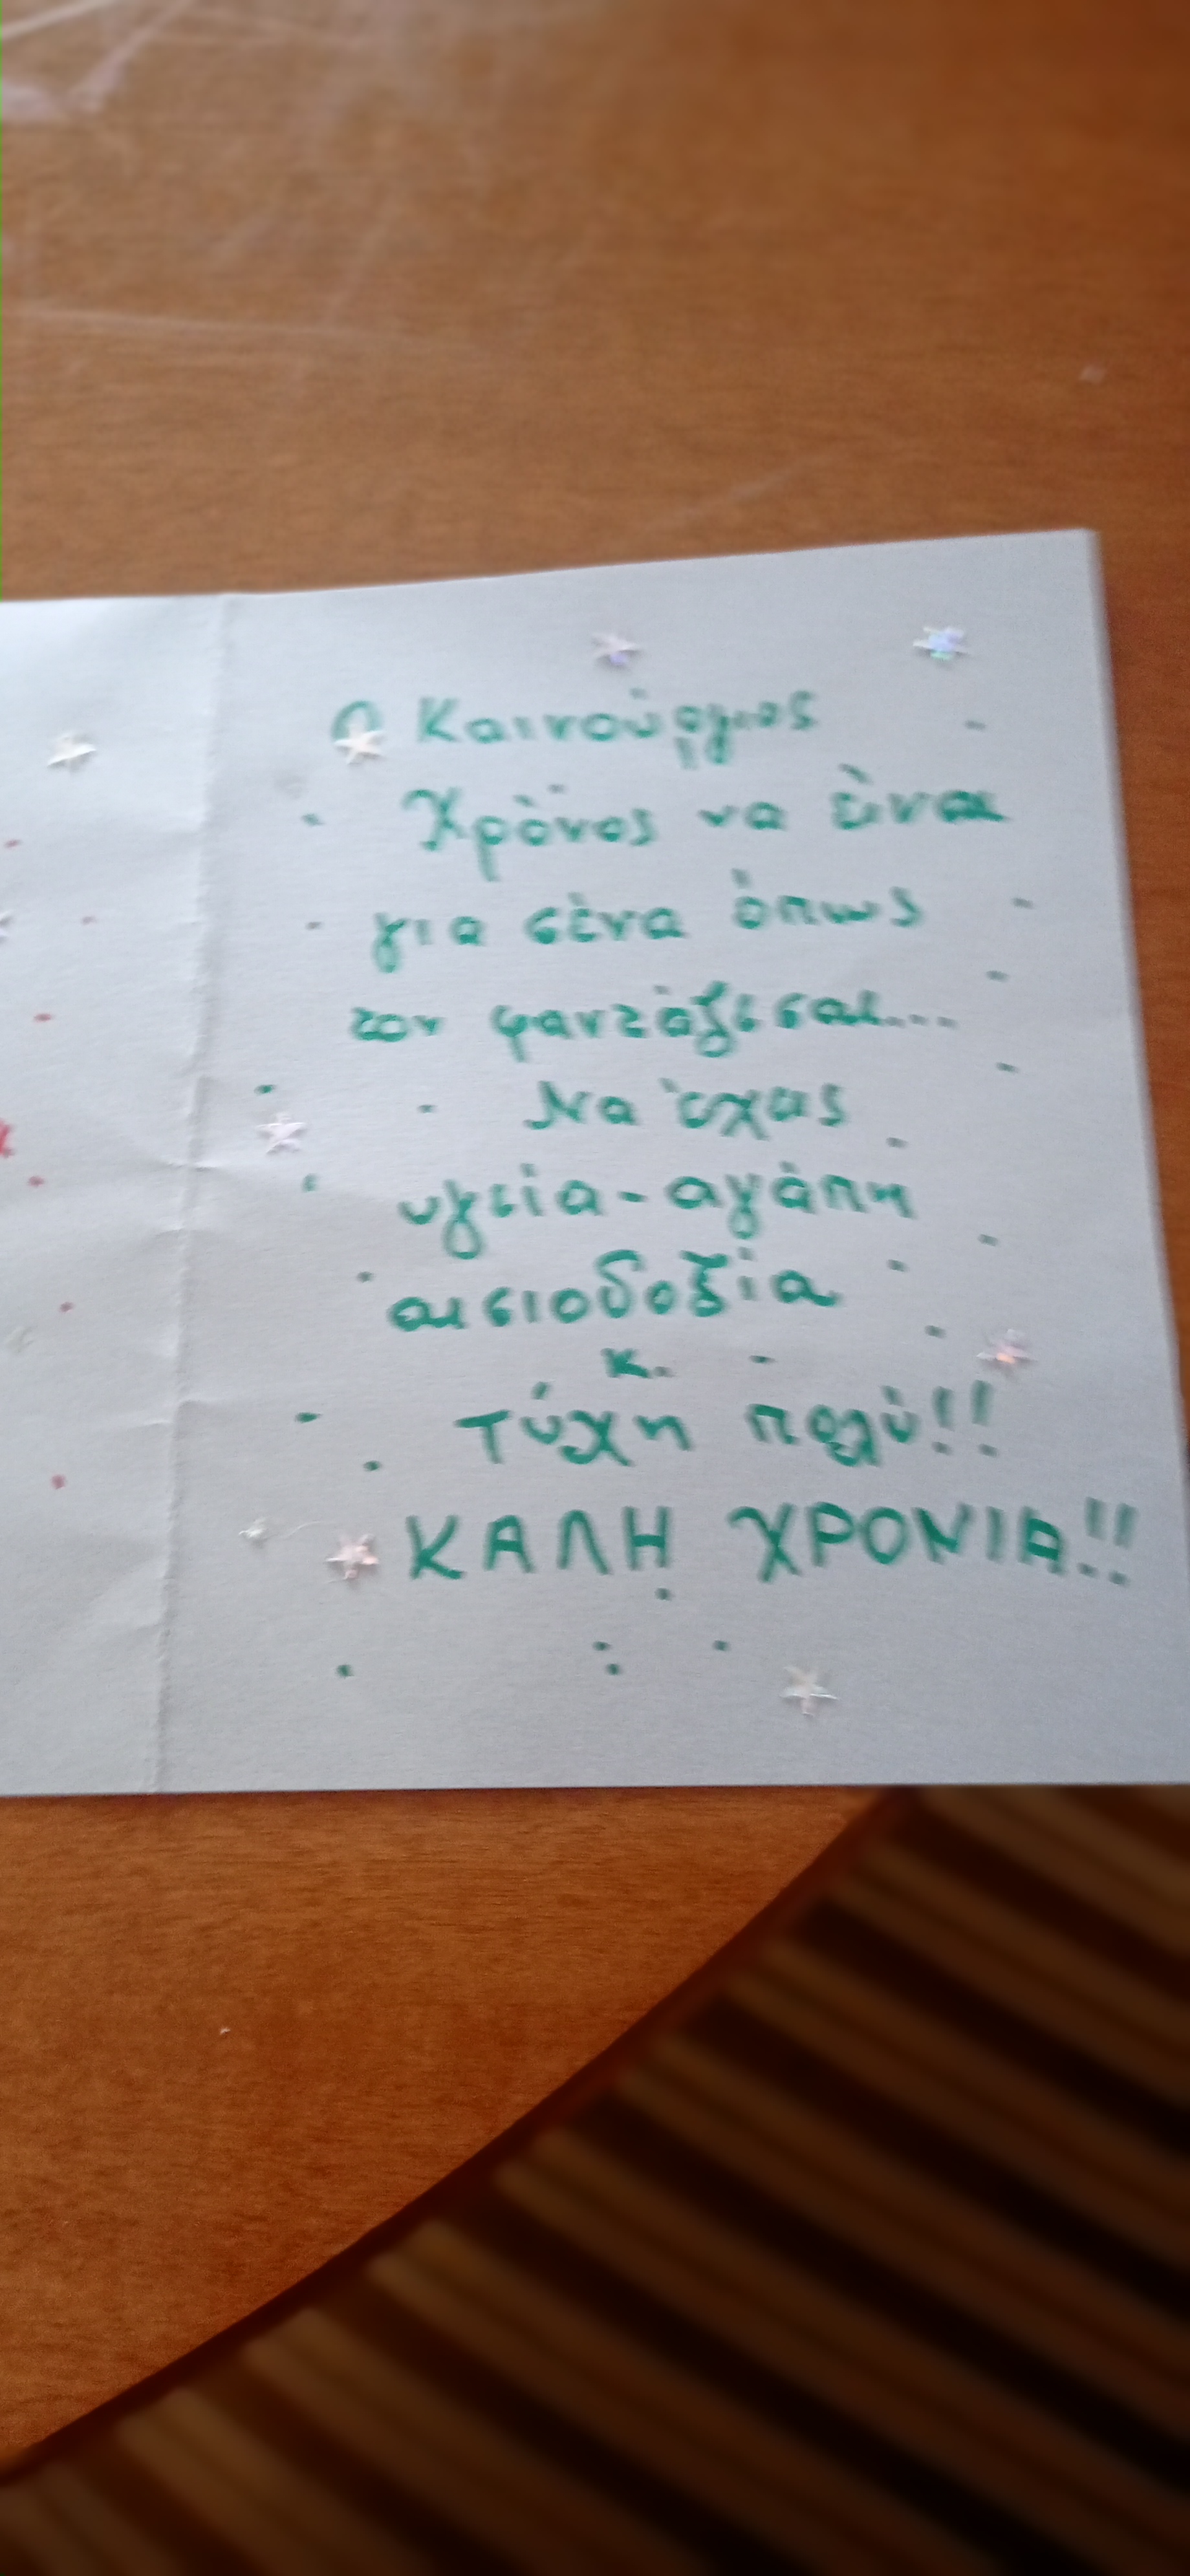 Ο Καινούργιος
Χρόνος να είναι
για σένα όπως
τον φαντάζεσαι...
Να έχεις
υγεία - αγάπη
αισιοδοξία
κ.
Τύχη πολύ!!
ΚΑΛΗ ΧΡΟΝΙΑ!!